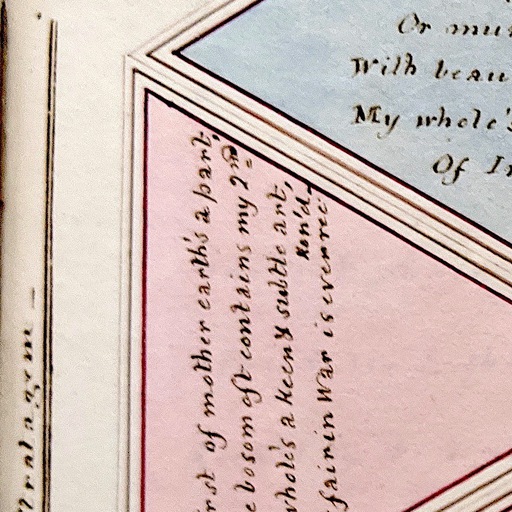 Or
With beau
My whole's
Of
rst of mother earth's a part,
e bosom oft contains my 2nd
whole's a keen & subtle art,
Ren'd
fair in War is ever